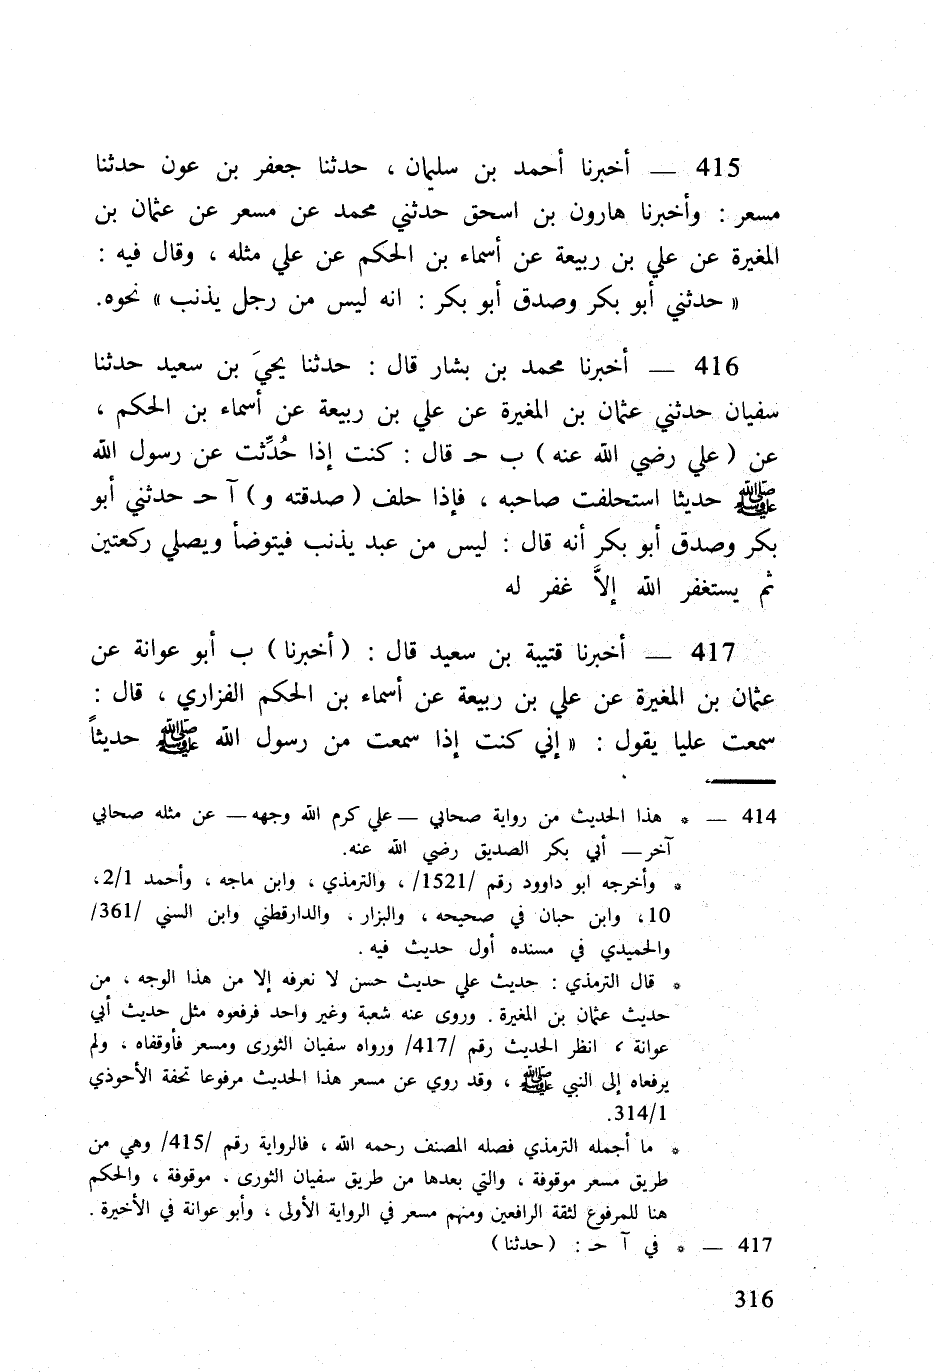 415 — أخبرنا أحمد بن سليمان ، حدثنا جعفر بن عون حدثنا
مسعر : وأخبرنا هارون بن اسحق حدثني محمد عن مسعر عن عثمان بن
المغيرة عن علي بن ربيعة عن أسماء بن الحكم عن علي مثله ، وقال فيه :
« حدثني أبو بكر وصدق أبو بكر : انه ليس من رجل يذنب » نحوه.
416 — أخبرنا محمد بن بشار قال : حدثنا يحيَ بن سعيد حدثنا
سفيان حدثني عثمان بن المغيرة عن علي بن ربيعة عن أسماء بن الحكم ،
عن ( علي رضي الله عنه ) ب حـ قال : كنت إذا حُدِّثت عن رسول الله
ﷺ حديثا استحلفت صاحبه ، فإذا حلف ( صدقته و ) آ حـ حدثني أبو
بكر وصدق أبو بكر أنه قال : ليس من عبد يذنب فيتوضأ ويصلي ركعتين
ثم يستغفر الله إلاَّ غفر له
417 — أخبرنا قتيبة بن سعيد قال : ( أخبرنا ) ب أبو عوانة عن
عثمان بن المغيرة عن علي بن ربيعة عن أسماء بن الحكم الفزاري ، قال :
سمعت عليا يقول : « إني كنت إذا سمعت من رسول الله ﷺ حديثاً
414 — * هذا الحديث من رواية صحابي — علي كرم الله وجهه — عن مثله صحابي
آخر — أبي بكر الصديق رضي الله عنه.
* وأخرجه ابو داوود رقم /1521/ ، والترمذي ، وابن ماجه ، وأحمد 2/1 ،
10 ، وابن حبان في صحيحه ، والبزار ، والدارقطني وابن السني /361/
والحميدي في مسنده أول حديث فيه .
* قال الترمذي : حديث علي حديث حسن لا نعرفه إلا من هذا الوجه ، من
حديث عثمان بن المغيرة . وروى عنه شعبة وغير واحد فرفعوه مثل حديث أبي
عوانة ، انظر الحديث رقم /417/ ورواه سفيان الثورى ومسعر فأوقفاه ، ولم
يرفعاه إلى النبي ﷺ ، وقد روي عن مسعر هذا الحديث مرفوعا تحفة الأحوذي
314/1.
* ما أجمله الترمذي فصله المصنف رحمه الله ، فالرواية رقم /415/ وهي من
طريق مسعر موقوفة ، والتي بعدها من طريق سفيان الثورى . موقوفة ، والحكم
هنا للمرفوع لثقة الرافعين ومنهم مسعر في الرواية الأولى ، وأبو عوانة في الأخيرة .
417 — * في آ حـ : ( حدثنا )
316